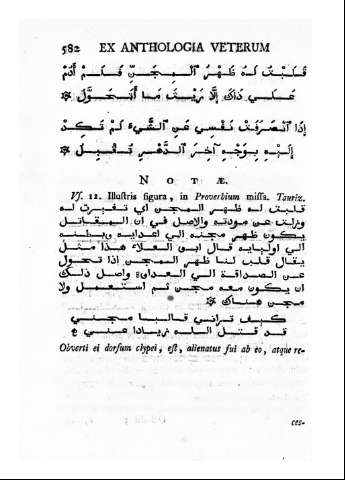 582 EX ANTHOLOGIA VETERUM
قَلَبْتُ لَهُ ظَهْرَ ٱلْمِجَنِّ فَلَمْ أَدُمْ
عَلَى ذَاكَ إِلَّا رَيْثَ مَا أَتَحَوَّلُ ✽
إِذَا ٱنْصَرَفَتْ نَفْسِي عَنِ ٱلشَّيْءِ لَمْ تَكَدْ
إِلَيْهِ بِوَجْهٍ آخِرَ ٱلدَّهْرِ تُقْبِلُ ✽
NOTÆ.
Vſ. 12. Illuſtris figura, in Proverbium miſſa. Tauriz.
قلبت له ظهر المجن اي تغيرت له
وزلت عن مودته والاصل في ان المقاتل
يكون ظهر مجنه الي اعدايه وبطنه
الي اوليايه قال ابن العلاء هذا مثل
يقال قلب لنا ظهر المجن اذا تحول
عن الصداقة الي العداوة واصل ذلك
ان يكون معه مجن ثم استعمل ولا
مجن هناك ✽
كيف تراني قالبا مجني
قد قتل الله زيادا عني ع
Obverti ei dorſum clypei, eſt, alienatus fui ab eo, atque re-
ces-